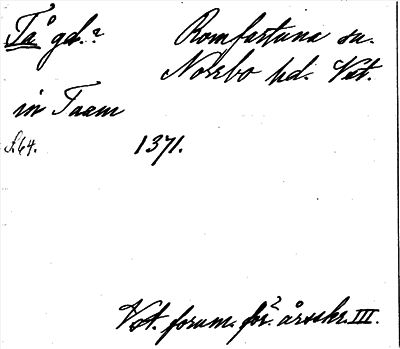 Tå gd.? Romfartuna sn.
Norrbo hd. Vst.
in Taam
s. 64. 1371.
Vst. fornm. för:² årsskr. III.